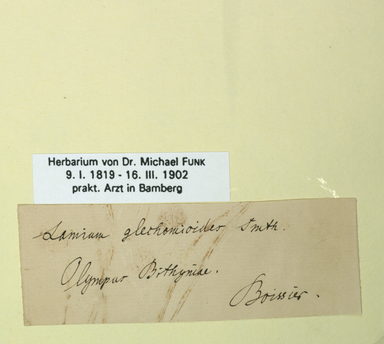 Herbarium von Dr. Michael FUNK
9. I. 1819 - 16. III. 1902
prakt. Arzt in Bamberg
Lamium glechomioides Smth.
Olympus Bithyniae.
Boissier.